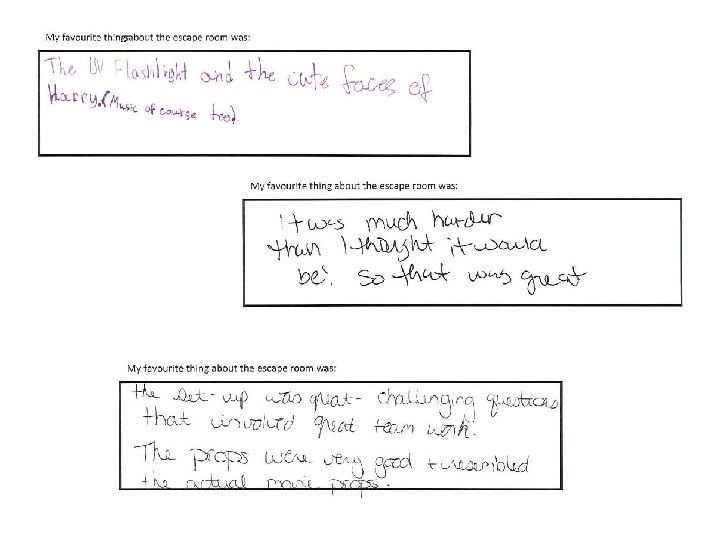 My favourite thing about the escape room was:
The UV Flashlight and the cute faces of
Harry. (Music of course too)
My favourite thing about the escape room was:
It was much harder
than I thought it would
be! So that was great
My favourite thing about the escape room was:
the set-up was great - challenging questions
that involved great team work.
The props were very good + resembled
the actual movie props.